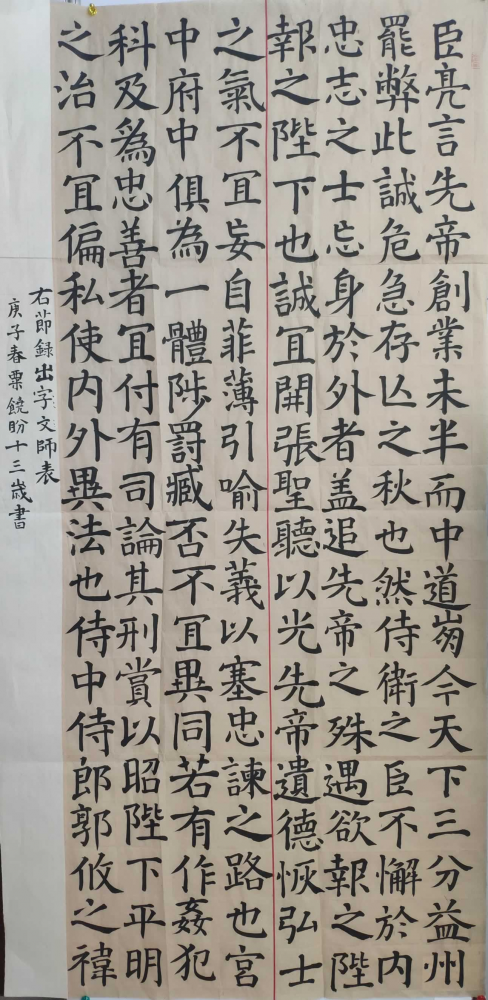 臣亮言先帝創業未半而中道崩今天下三分益州
罷弊此誠危急存亡之秋也然侍衛之臣不懈於内
忠志之士忘身於外者盖追先帝之殊遇欲報之陛
報之陛下也誠宜開張聖聽以光先帝遺德恢弘士
之氣不宜妄自菲薄引喻失義以塞忠諫之路也宮
中府中俱為一體陟罰臧否不宜異同若有作姦犯
科及爲忠善者宜付有司論其刑賞以昭陛下平明
之治不宜偏私使内外異法也侍中侍郎郭攸之禕
右節録出字文師表
庚子春粟饒盼十三歲書